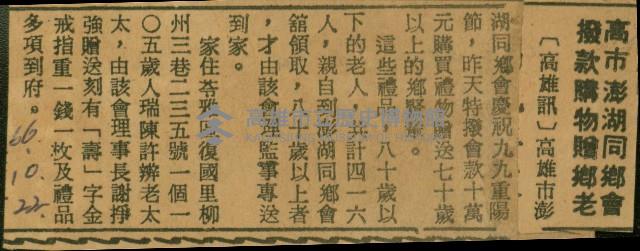 高市澎湖同鄉會
撥款購物贈鄉老
〔高雄訊〕高雄市澎
湖同鄉會慶祝九九重陽
節，昨天特撥會款十萬
元購買禮物贈送七十歲
以上的鄉賢輩。
這些禮品，八十歲以
下的老人，共計四一六
人，親自到澎湖同鄉會
舘領取，八十歲以上者
，才由該會理監事專送
到家。
家住苓雅區復國里柳
州三巷二三五號一個一
〇五歲人瑞陳許辦老太
太，由該會理事長謝掙
強贈送刻有「壽」字金
戒指重一錢一枚及禮品
多項到府。
66.
10.
22.
高雄市立歷史博物館